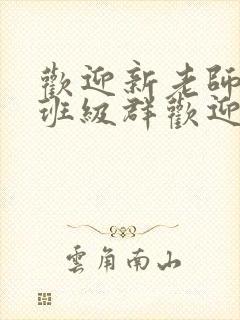 歡迎新老師
班級群歡迎
雲角南山